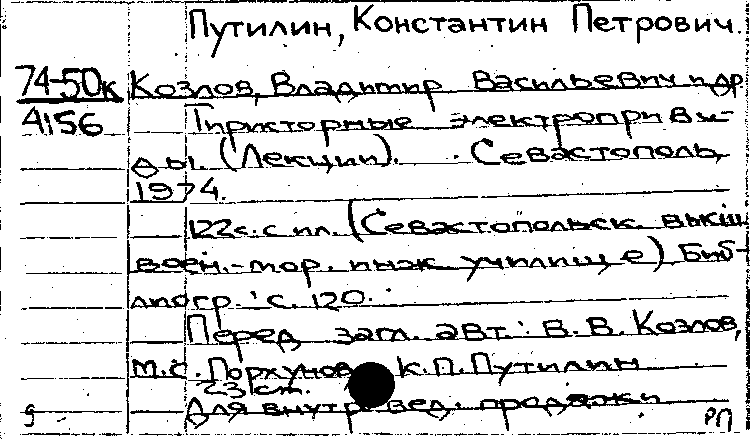 Путилин, Константин Петрович.
74-50к Козлов, Владимир Васильевич и др
4156 Тиристорные электроприво-
ды. (Лекции). Севастополь,
1974.
122с. с ил. (Севастопольск. высш
воен.-мор. инж училище) Биб-
лиогр.: с. 120.
Перед загл. авт.: В. В. Козлов,
М.С. Порхунов К.П. Путилин
23 см.
Для внутр вед. продажи
9 РП